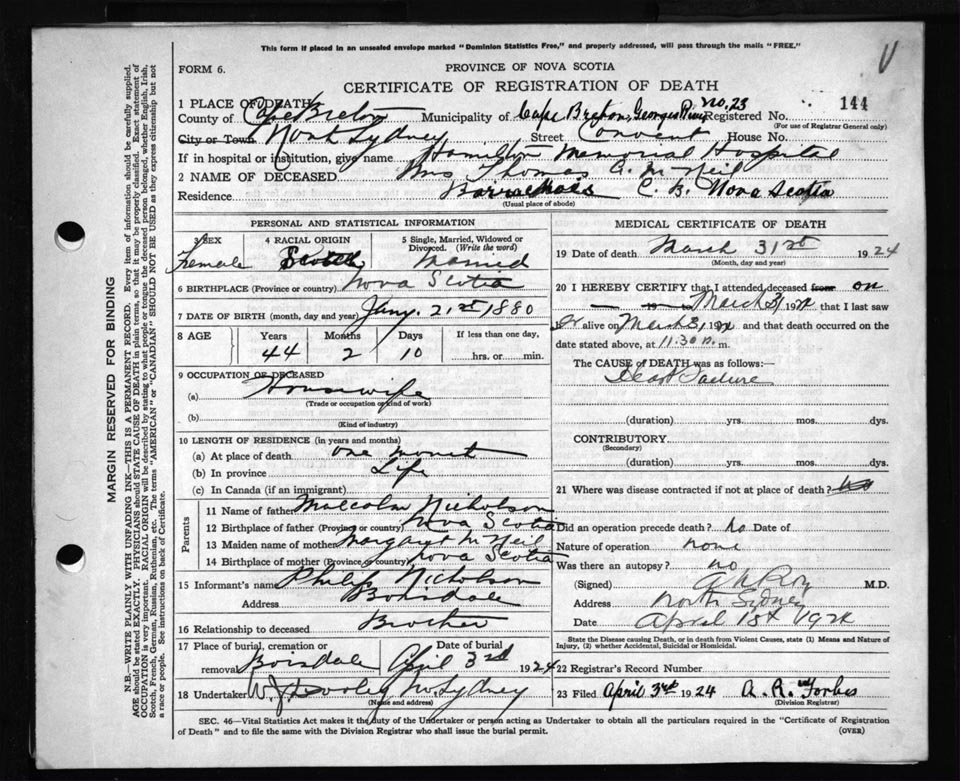 This form if placed in an unsealed envelope marked "Dominion Statistics Free," and properly addressed, will pass through the mails "FREE."
FORM 6.
PROVINCE OF NOVA SCOTIA
CERTIFICATE OF REGISTRATION OF DEATH
144
1 PLACE OF DEATH
County of Cape Breton Municipality of Cape Breton, Georges River No. 23 Registered No.
(For use of Registrar General only)
City or Town North Sydney Street Convent House No.
If in hospital or institution, give name Hamilton Memorial Hospital
2 NAME OF DECEASED Mrs Thomas A. McNeil
Residence C. B. Nova Scotia
(Usual place of abode)
PERSONAL AND STATISTICAL INFORMATION
3 SEX 4 RACIAL ORIGIN 5 Single, Married, Widowed or Divorced. (Write the word)
Female Scotch Married
6 BIRTHPLACE (Province or country) Nova Scotia
7 DATE OF BIRTH (month, day and year) Jany. 21st 1880
8 AGE Years Months Days If less than one day,
44 2 10 hrs. or min.
9 OCCUPATION OF DECEASED
(a) Housewife
(Trade or occupation or kind of work)
(b)
(Kind of industry)
10 LENGTH OF RESIDENCE (in years and months)
(a) At place of death one month
(b) In province Life
(c) In Canada (if an immigrant)
Parents
11 Name of father Malcolm Nicholson
12 Birthplace of father (Province or country) Nova Scotia
13 Maiden name of mother Margaret McNeil
14 Birthplace of mother (Province or country) Nova Scotia
15 Informant's name Philip Nicholson
Address Boisdale
16 Relationship to deceased Brother
17 Place of burial, cremation or Date of burial
removal Boisdale April 3rd 1924
18 Undertaker W. J. Dooley N. Sydney
(Name and address)
MEDICAL CERTIFICATE OF DEATH
19 Date of death March 31st 1924
(Month, day and year)
20 I HEREBY CERTIFY that I attended deceased from on
to March 31 1924 that I last saw
her alive on March 31 1924 and that death occurred on the
date stated above, at 11.30 p. m.
The CAUSE OF DEATH was as follows:
Heart Failure
(duration) yrs. mos. dys.
CONTRIBUTORY
(Secondary)
(duration) yrs. mos. dys.
21 Where was disease contracted if not at place of death?
Did an operation precede death? no Date of
Nature of operation none
Was there an autopsy? no
(Signed) Roy M.D.
Address North Sydney
Date April 1st 1924
State the Disease causing Death, or in death from Violent Causes, state (1) Means and Nature of
Injury, (2) whether Accidental, Suicidal or Homicidal.
22 Registrar's Record Number
23 Filed April 3rd 1924 A. R. Forbes
(Division Registrar)
SEC. 46—Vital Statistics Act makes it the duty of the Undertaker or person acting as Undertaker to obtain all the particulars required in the "Certificate of Registration
of Death" and to file the same with the Division Registrar who shall issue the burial permit.
(OVER)
MARGIN RESERVED FOR BINDING
N.B.—WRITE PLAINLY WITH UNFADING INK—THIS IS A PERMANENT RECORD. Every item of information should be carefully supplied.
AGE should be stated EXACTLY. PHYSICIANS should STATE CAUSE OF DEATH in plain terms, so that it may be properly classified. Exact statement of
OCCUPATION is very important. RACIAL ORIGIN will be described by stating to what people or tongue the deceased person belonged, whether English, Irish,
Scotch, French, German, Russian, Ruthenian, etc. The terms "AMERICAN" or "CANADIAN" SHOULD NOT BE USED as they express citizenship but not
a race or people. See instructions on back of Certificate.